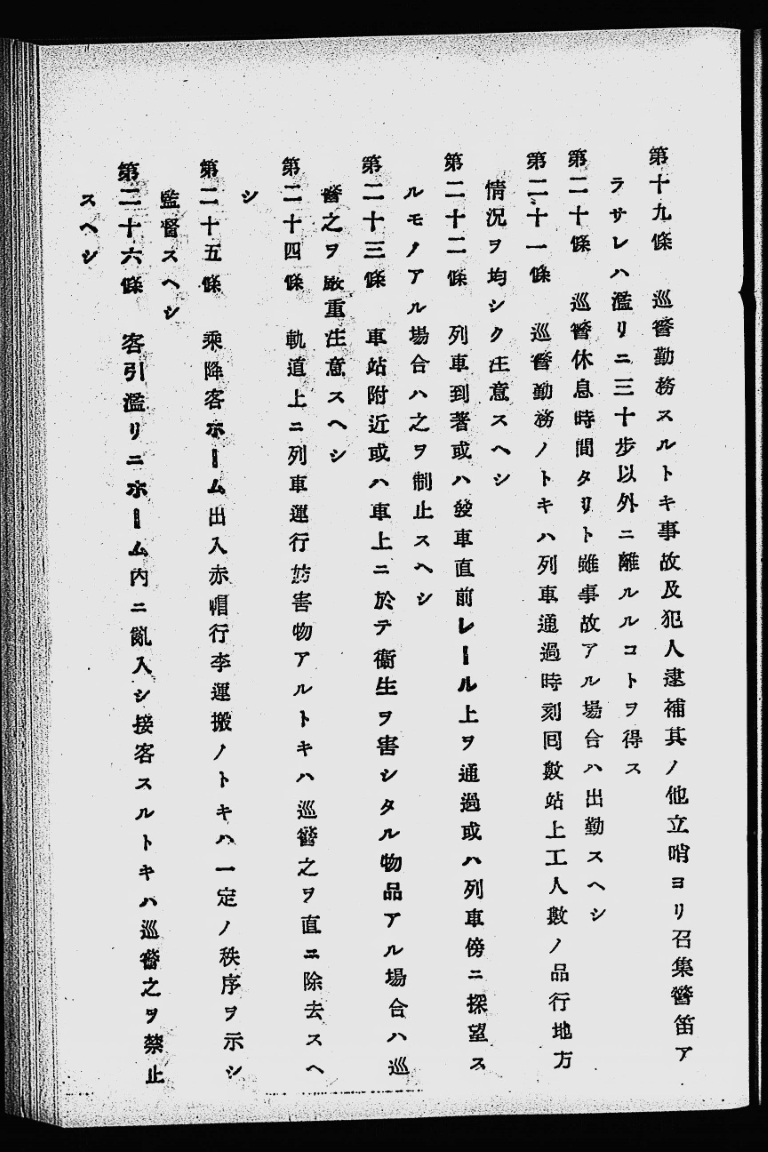 第十九條　巡警勤務スルトキ事故及犯人逮捕其ノ他立哨ヨリ召集警笛ア
ラサレハ濫リニ三十步以外ニ離ルルコトヲ得ス
第二十條　巡警休息時間タリト雖事故アル場合ハ出勤スヘシ
第二十一條　巡警勤務ノトキハ列車通過時刻囘數站上工人數ノ品行地方
情況ヲ均シク注意スヘシ
第二十二條　列車到著或ハ發車直前レール上ヲ通過或ハ列車傍ニ探望ス
ルモノアル場合ハ之ヲ制止スヘシ
第二十三條　車站附近或ハ車上ニ於テ衞生ヲ害シタル物品アル場合ハ巡
警之ヲ嚴重注意スヘシ
第二十四條　軌道上ニ列車運行妨害物アルトキハ巡警之ヲ直ニ除去スヘ
シ
第二十五條　乘降客ホーム出入赤帽行李運搬ノトキハ一定ノ秩序ヲ示シ
監督スヘシ
第二十六條　客引濫リニホーム內ニ亂入シ接客スルトキハ巡警之ヲ禁止
スヘシ